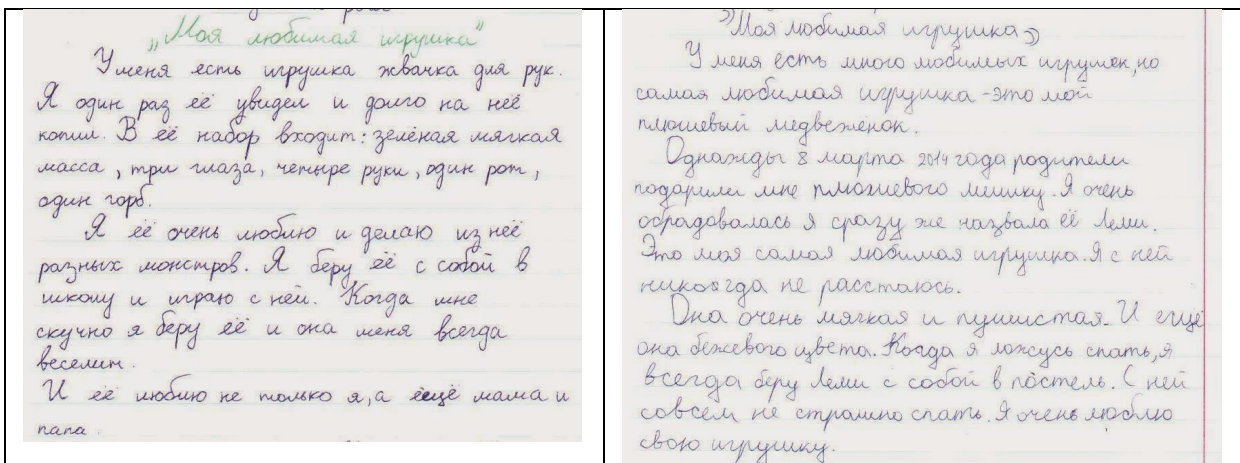 „Моя любимая игрушка"
У меня есть игрушка жвачка для рук.
Я один раз её увидел и долго на неё
копил. В её набор входит: зелёная мягкая
масса, три глаза, четыре руки, один рот,
один горб.
Я её очень люблю и делаю из неё
разных монстров. Я беру её с собой в
школу и играю с ней. Когда мне
скучно я беру её и она меня всегда
веселит.
И её люблю не только я, а ещё мама и
папа.
"Моя любимая игрушка"
У меня есть много любимых игрушек, но
самая любимая игрушка - это мой
плюшевый медвежёнок.
Однажды 8 марта 2014 года родители
подарили мне плюшевого мишку. Я очень
обрадовалась я сразу же назвала её Леми.
Это моя самая любимая игрушка. Я с ней
никогда не расстаюсь.
Она очень мягкая и пушистая. И ещё
она бежевого цвета. Когда я ложусь спать, я
всегда беру Леми с собой в постель. С ней
совсем не страшно спать. Я очень люблю
свою игрушку.